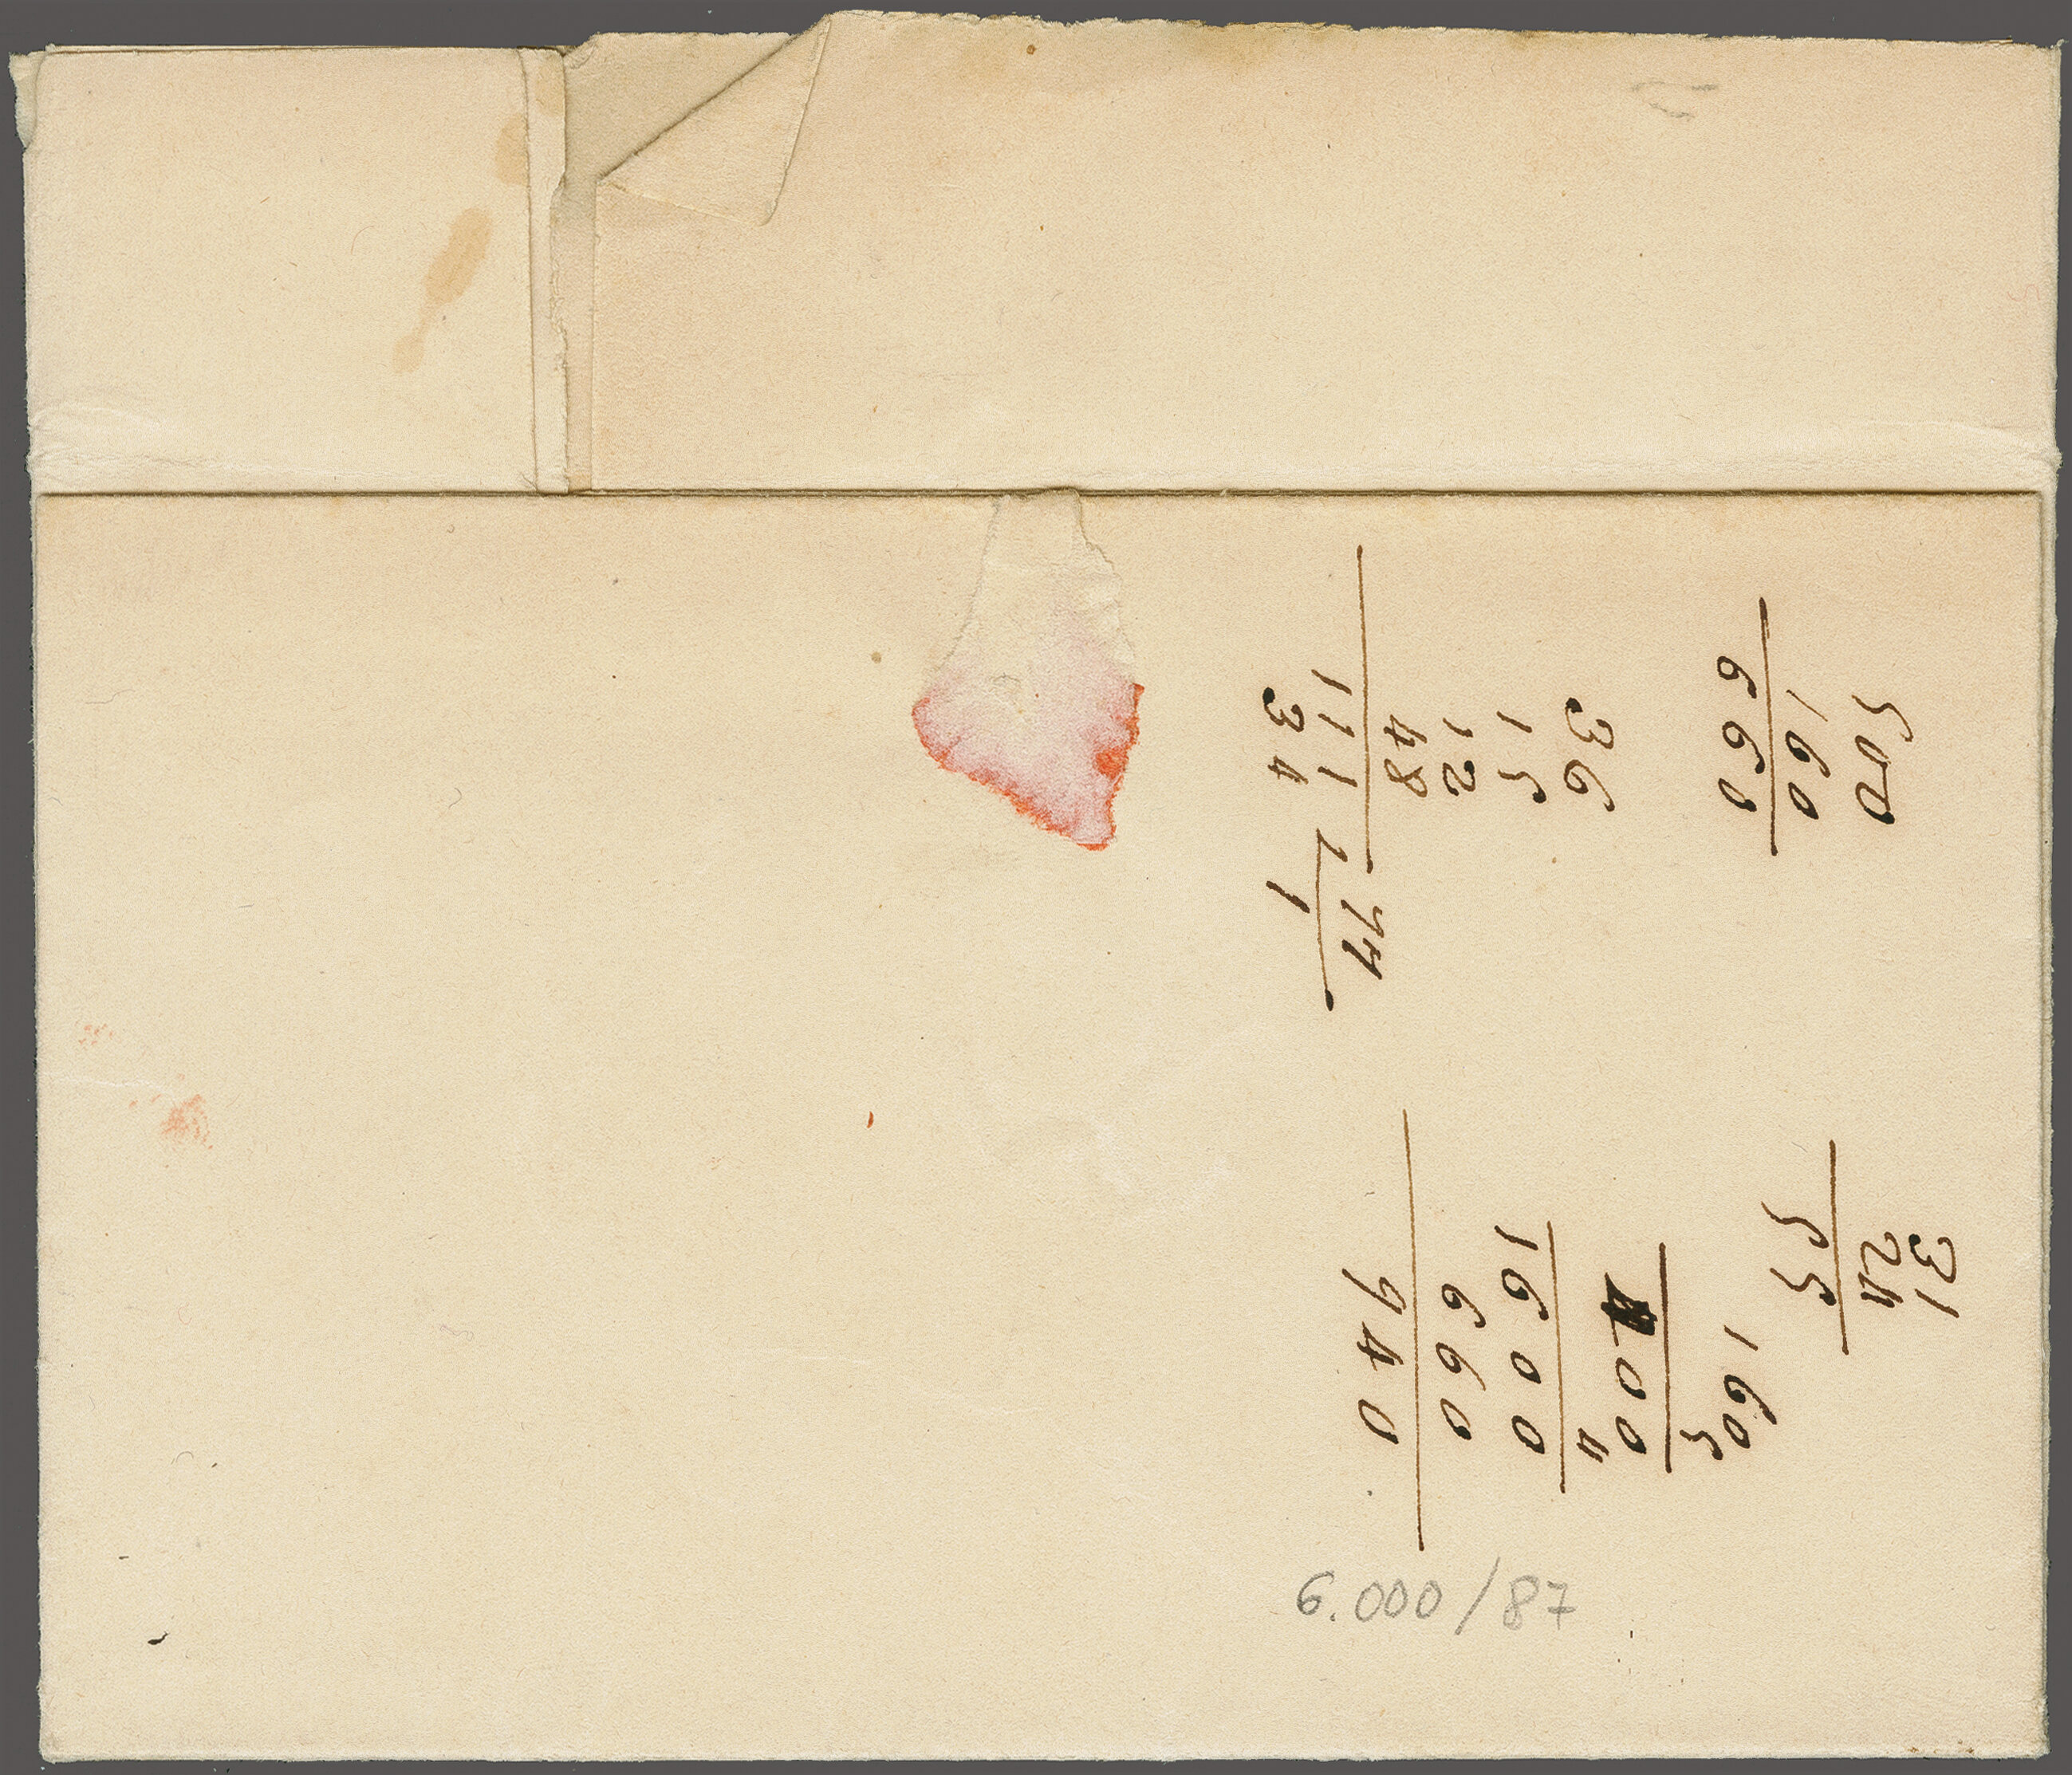 500
160
660
36
15
12
48
111
34 1
31
24
55
160
5
400
4
1600
660
940
6.000/87